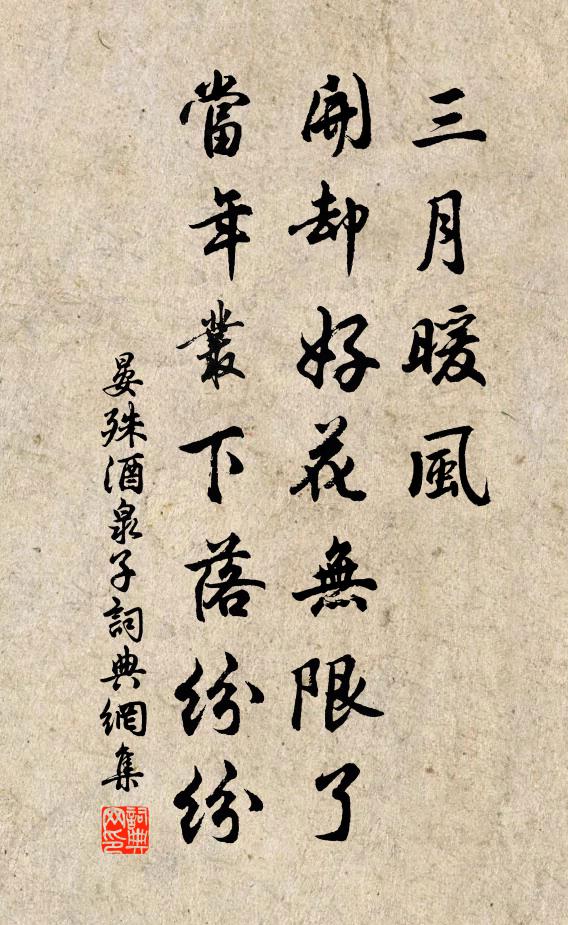 三月暖風
開却好花無限了
當年叢下落紛紛
晏殊酒泉子詞典網集
詞典網印